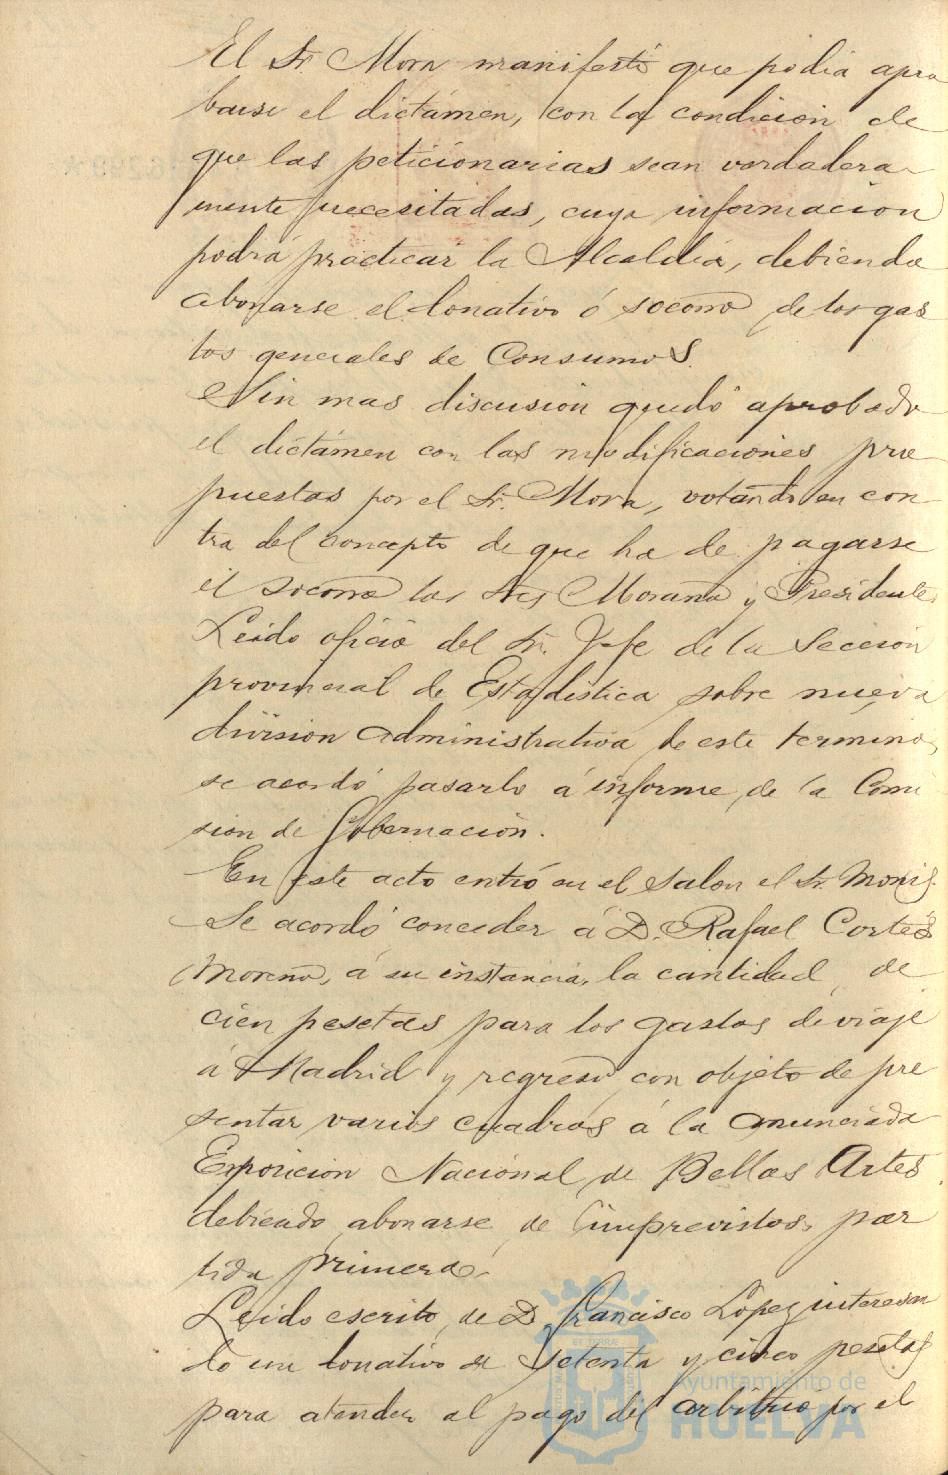 El Sr. Mora manifestó que podia apro
barse el dictámen, con la condicion de
que las peticionarias sean verdadera
mente necesitadas, cuya informacion
podrá practicar la Alcaldia, debiendo
abonarse el donativo ó socorro de los gas
tos generales de Consumos.
Sin mas discusion quedó aprobado
el dictámen con las modificaciones pro
puestas por el Sr. Mora, votando en con
tra del concepto de que ha de pagarse
el socorro los Sres Moraña y Presidente.
Leido oficio del Sr. Jefe de la Seccion
provincial de Estadistica sobre nueva
division administrativa de este término,
se acordó pasarlo á informe de la Comi
sion de Gobernación.
En este acto entró en el salon el Sr.
Se acordó conceder á D. Rafael Cortés
Moreno, á su instancia, la cantidad de
cien pesetas para los gastos de viaje
á Madrid y regreso con objeto de pre
sentar varios cuadros á la anunciada
Exposicion Nacional de Bellas Artes
debiendo abonarse de imprevistos, par
tida primera.
Leido escrito de D. Francisco López interesan
do un donativo de setenta y cinco pesetas
para atender al pago del arbitrio por el
Ayuntamiento de
HUELVA